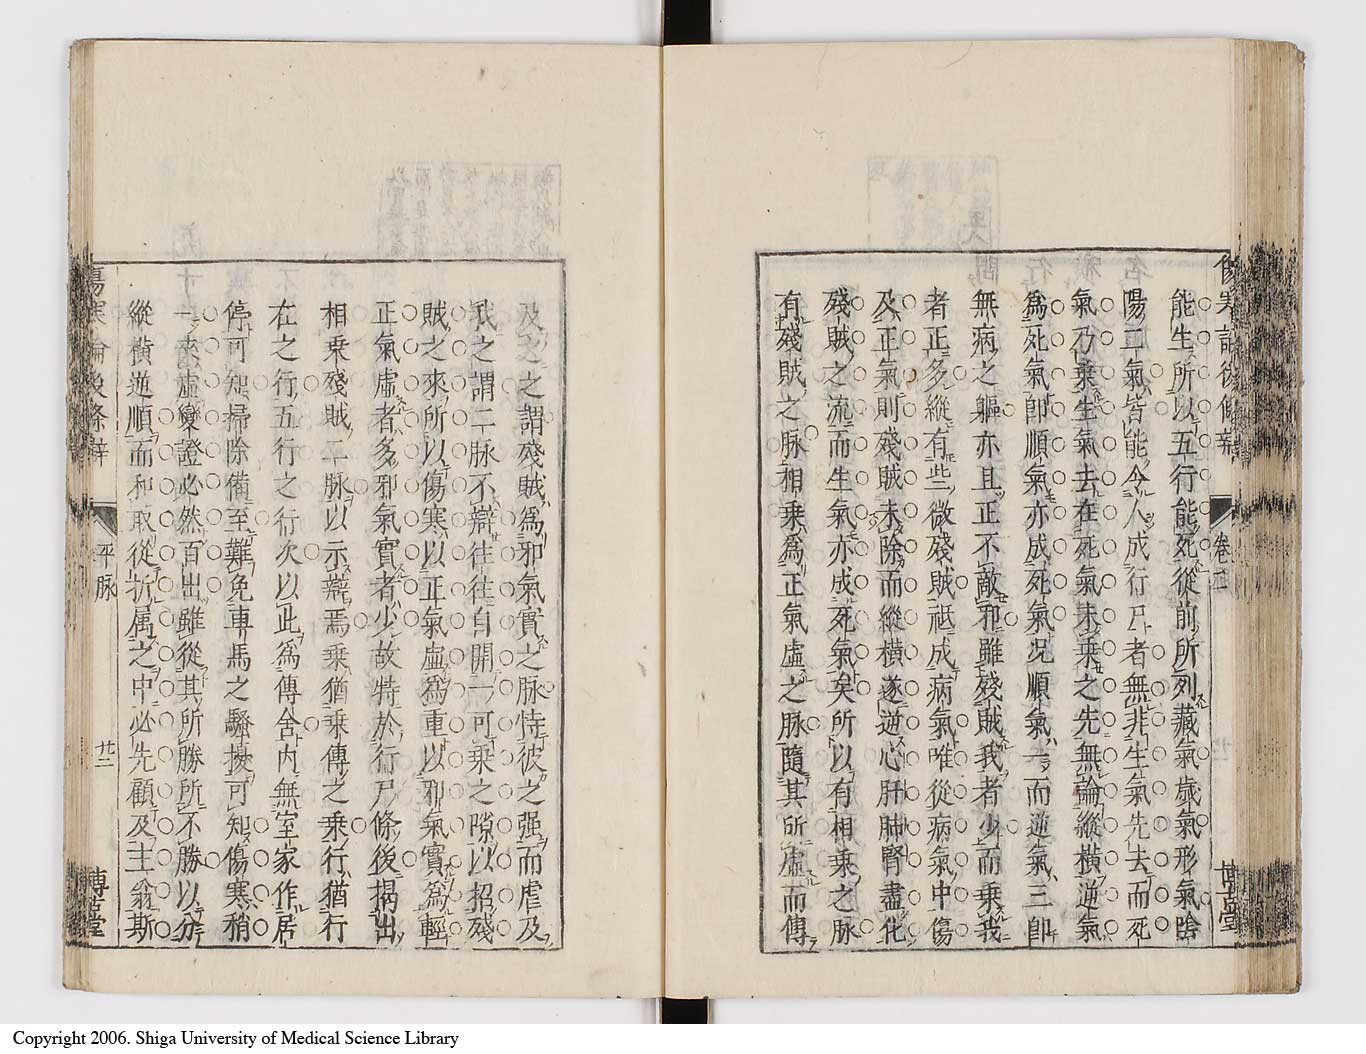 傷寒論後條辨
卷三
博古堂
能生所以五行能死從前所列藏氣歲氣形氣陰
陽二氣皆能令人成行尸者無非生氣先去而死
氣乃乘生氣去在死氣未乘之先無論縱橫逆氣
爲死氣卽順氣亦成死氣况順氣一而逆氣三卽
無病之軀亦且正不敵邪雖殘賊我者少而乘我
者正多縱有些微殘賊祗成病氣唯從病氣中傷
及正氣則殘賊未除而縱橫遂逆心肝肺腎盡化
殘賊之流而生氣亦成死氣矣所以有相乘之脉
有殘賊之脉相乘爲正氣虛之脉隨其所虛而傳
及之之謂殘賊爲邪氣實之脉恃彼之强而虐及
我之謂二脉不辯往往自開一可乘之隙以招殘
賊之來所以傷寒以正氣虛爲重以邪氣實爲輕
正氣虛者多邪氣實者少故特於行尸條後揭出
相乘殘賊二脉以示辯焉乘猶乘傳之乘行猶行
在之行五行之行次以此爲傳舍内無室家作居
停可知掃除備至難免車馬之騷擾可知傷寒稍
一表虛變證必然百出雖從其所勝所不勝以分
縱橫逆順而和取從折属之中必先顧及主翁斯
傷寒論後條辨
平脉
廿二
博古堂
Copyright 2006. Shiga University of Medical Science Library